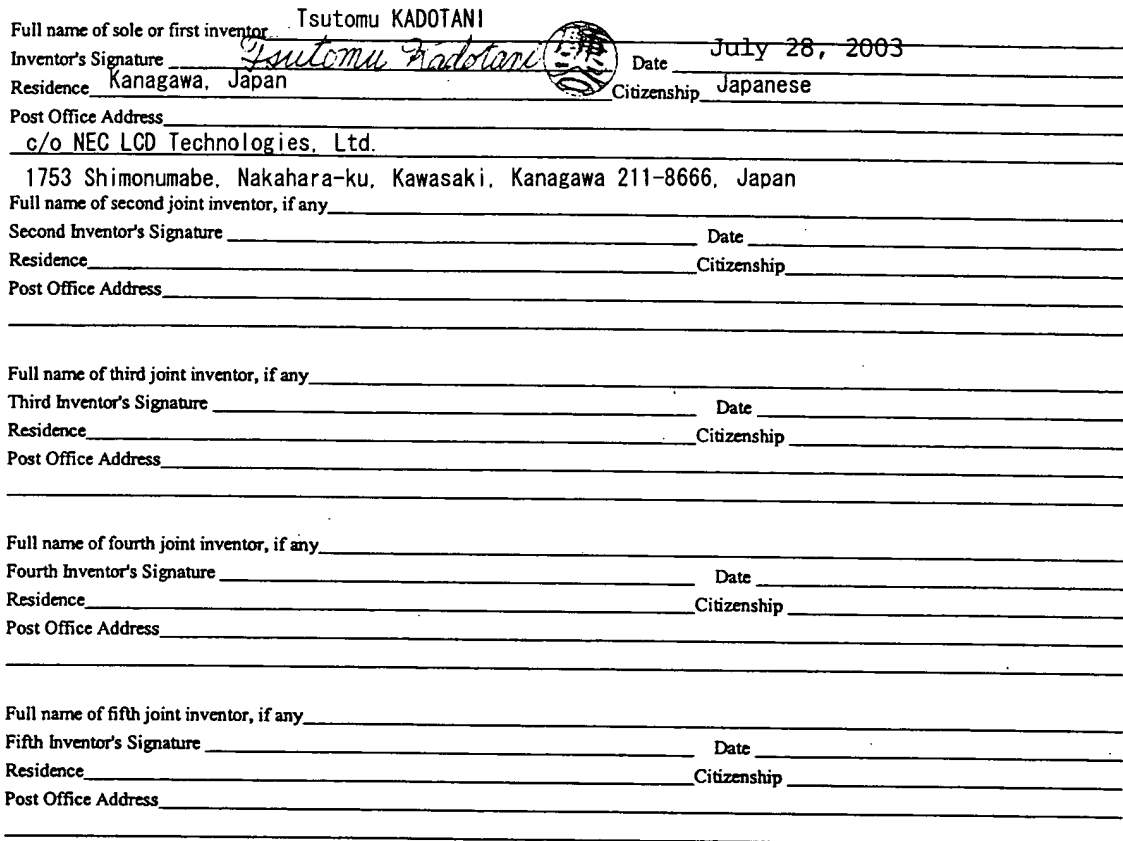 Full name of sole or first inventor Tsutomu KADOTANI
Inventor's Signature Tsutomu Kadotani Date July 28, 2003
Residence Kanagawa, Japan Citizenship Japanese
Post Office Address
c/o NEC LCD Technologies, Ltd.
1753 Shimonumabe, Nakahara-ku, Kawasaki, Kanagawa 211-8666, Japan
Full name of second joint inventor, if any
Second Inventor's Signature Date
Residence Citizenship
Post Office Address
Full name of third joint inventor, if any
Third Inventor's Signature Date
Residence Citizenship
Post Office Address
Full name of fourth joint inventor, if any
Fourth Inventor's Signature Date
Residence Citizenship
Post Office Address
Full name of fifth joint inventor, if any
Fifth Inventor's Signature Date
Residence Citizenship
Post Office Address